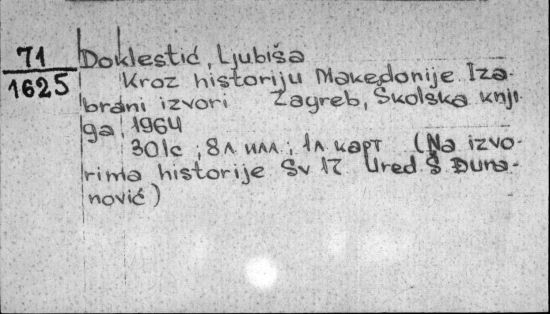 71
1625
Doklestić, Ljubiša
Kroz historiju Makedonije. Iza-
brani izvori Zagreb, Školska knji
ga, 1964
301с ; 8л илл ; 1л карт (Na izvo-
rima historije Sv 17 Ured. Š. Đura-
nović)